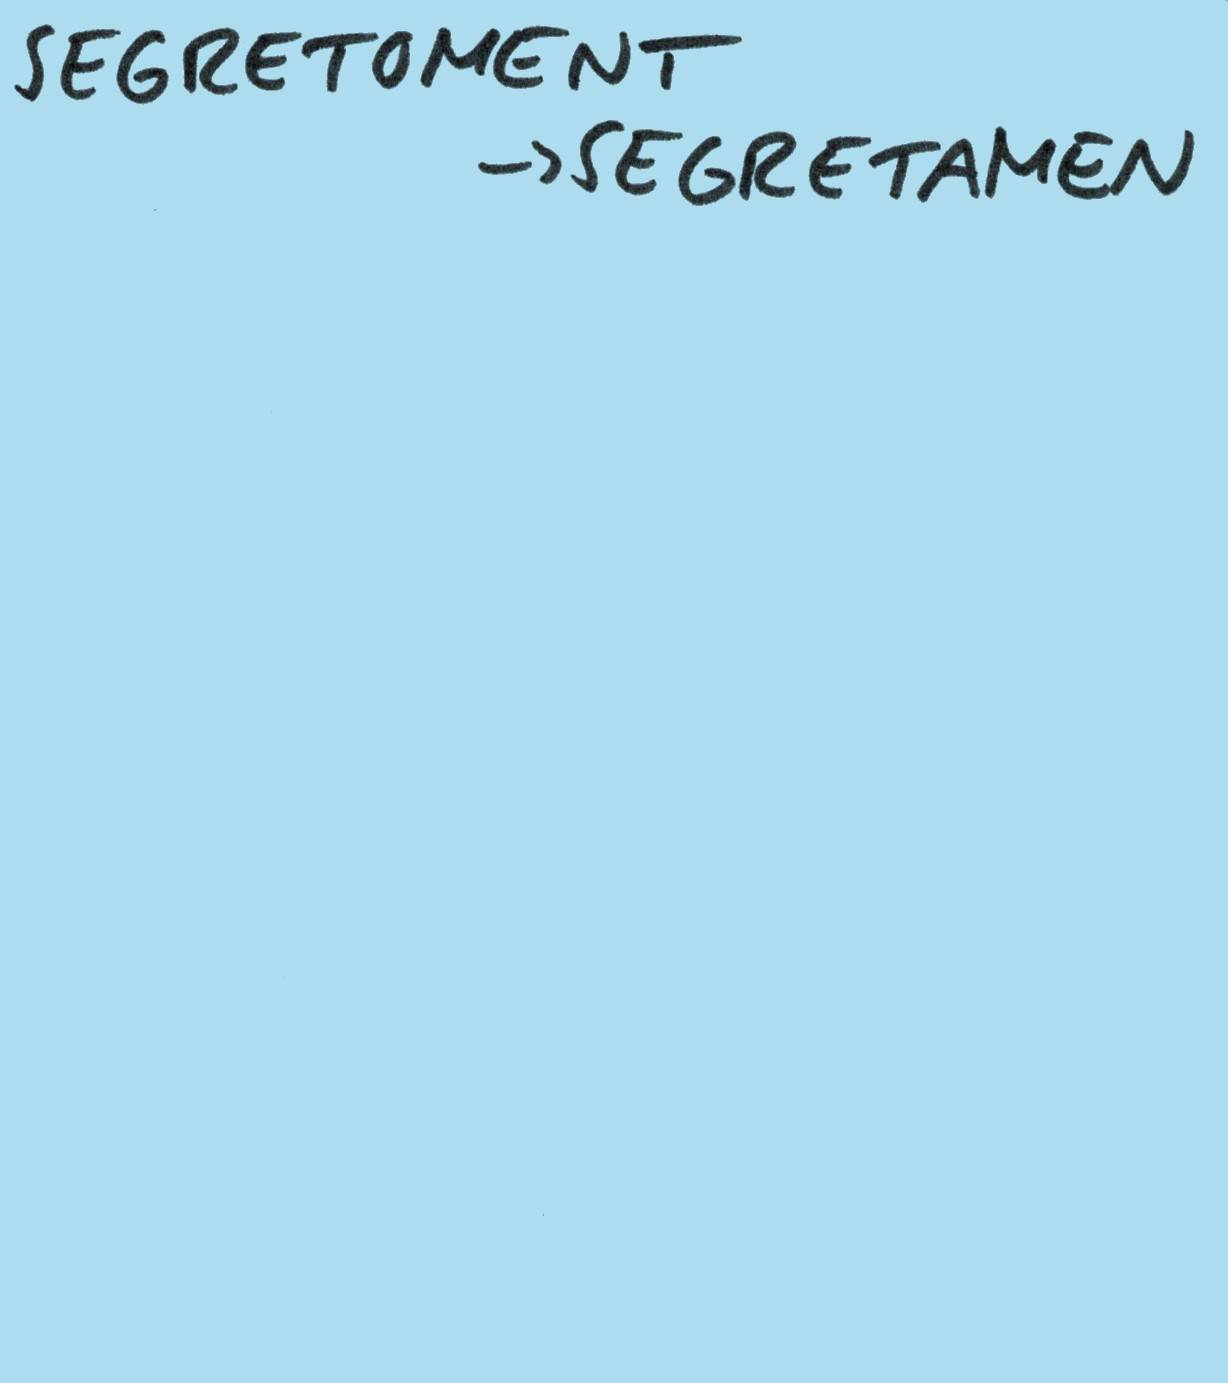 SEGRETOMENT
->SEGRETAMEN